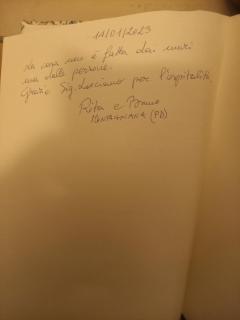 11/01/2023
La casa non è fatta dai muri
ma dalle persone.
Grazie Sig. Luciano per l'ospitalità
Rita e Bruno
MONTAGNANA (PD)